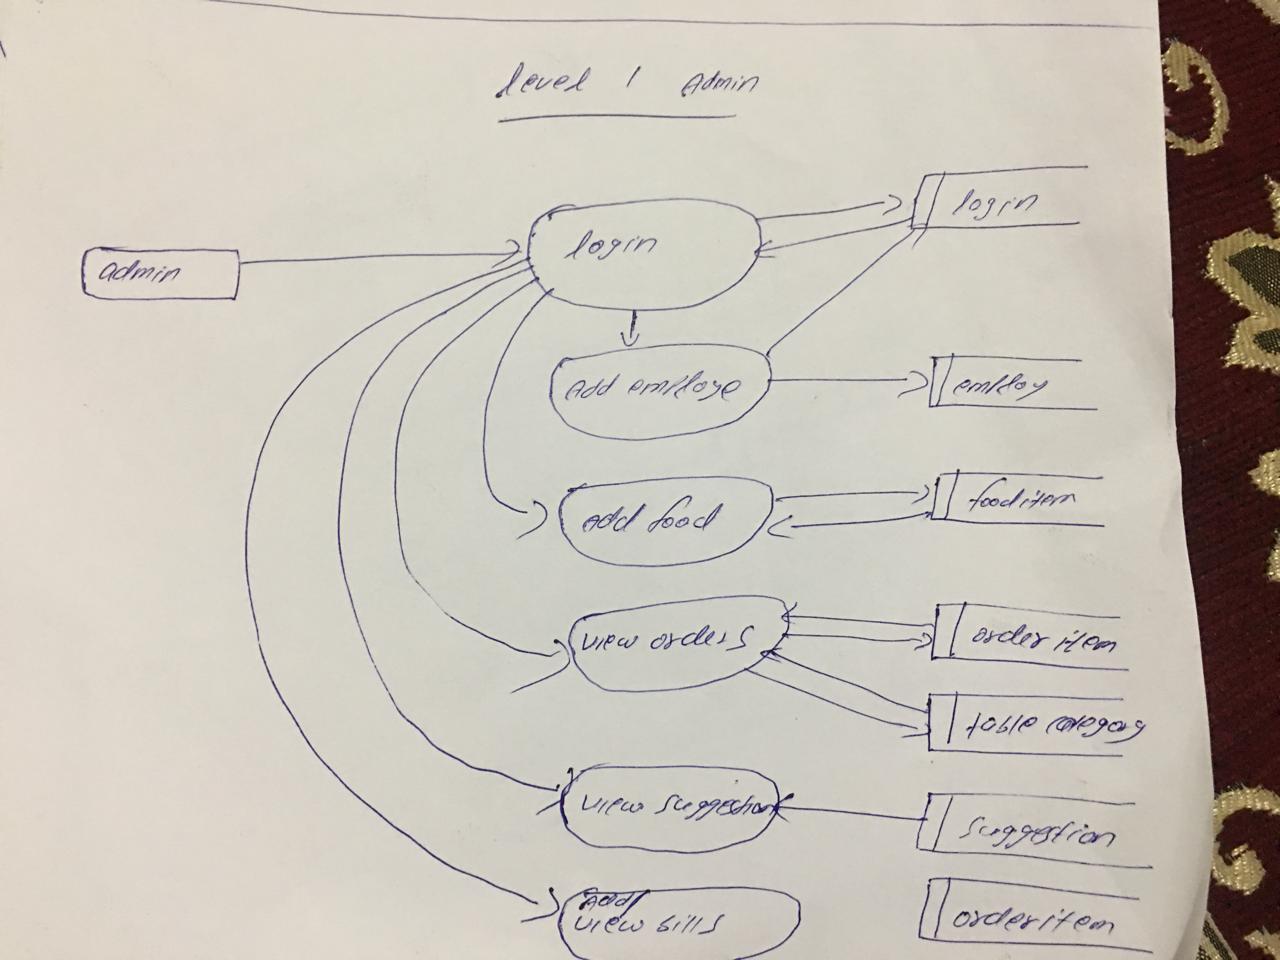 level 1 Admin
login
login
admin
Add employe
employ
Add food
food item
view orders
order item
table category
view suggestion
suggestion
Add/
view bills
order item